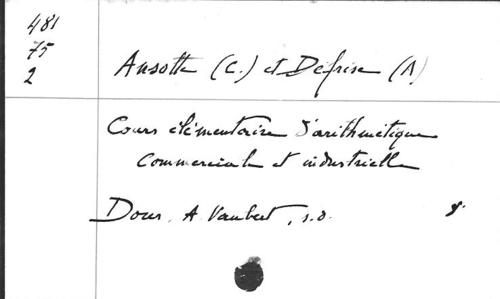 481
75
2
Ansotte (C.) et Defrise (A)
Cours élémentaire d'arithmétique
commerciale et industrielle
Dour, A. Vaubert, s.d. 8.